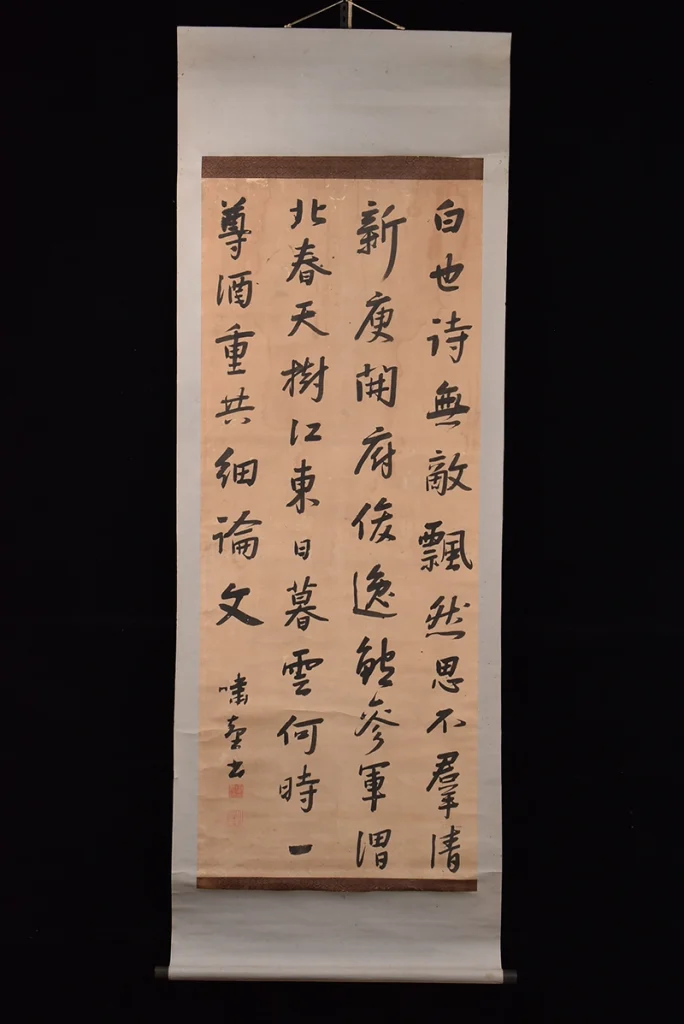 白也詩無敵飄然思不羣清
新庾開府俊逸鮑參軍渭
北春天樹江東日暮雲何時一
尊酒重共細論文
嘯臺書